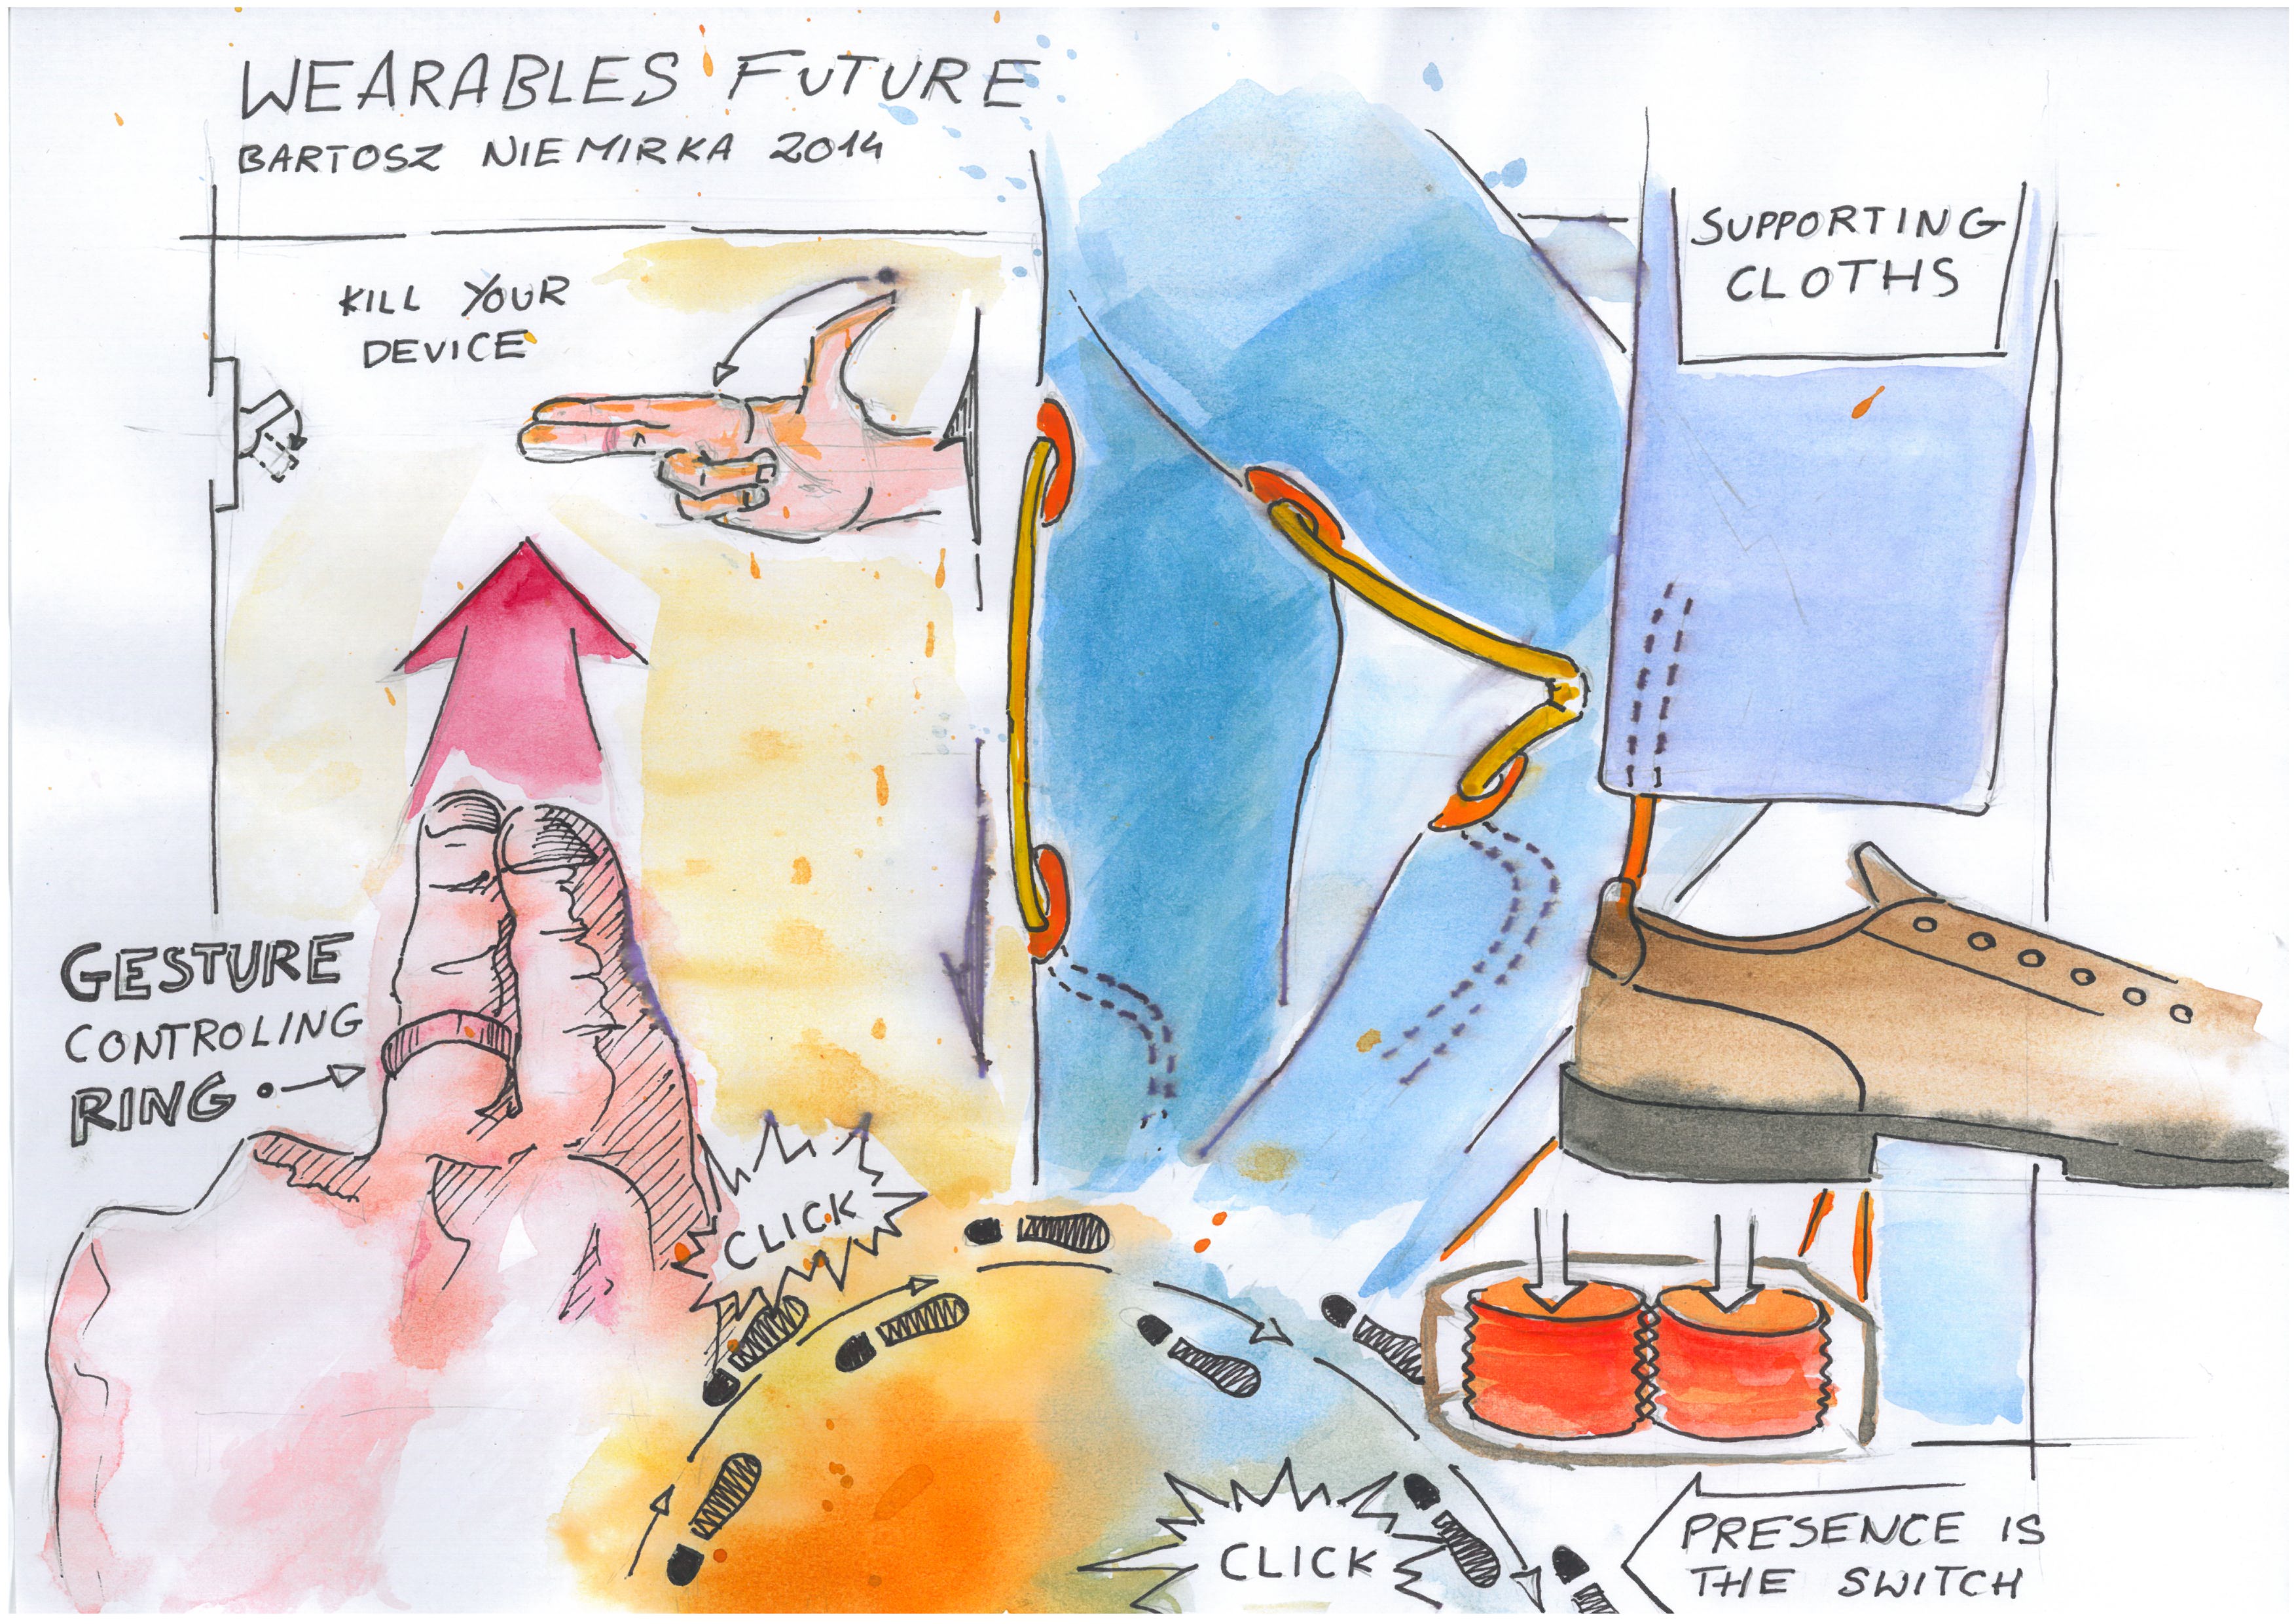 WEARABLES FUTURE
BARTOSZ NIEMIRKA 2014
KILL YOUR
DEVICE
SUPPORTING
CLOTHS
GESTURE
CONTROLING
RING
CLICK
CLICK
PRESENCE IS
THE SWITCH